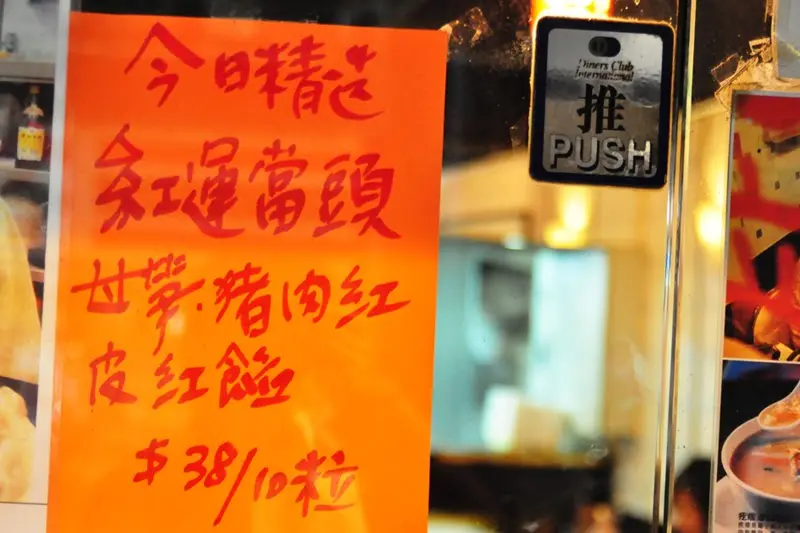 今日精造
紅運當頭
甘筍·猪肉紅
皮紅餡
$38/10粒
Diners Club
International
推
PUSH